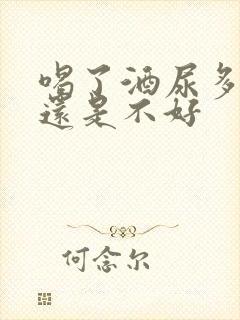 喝了酒尿多
還是不好
何念尔